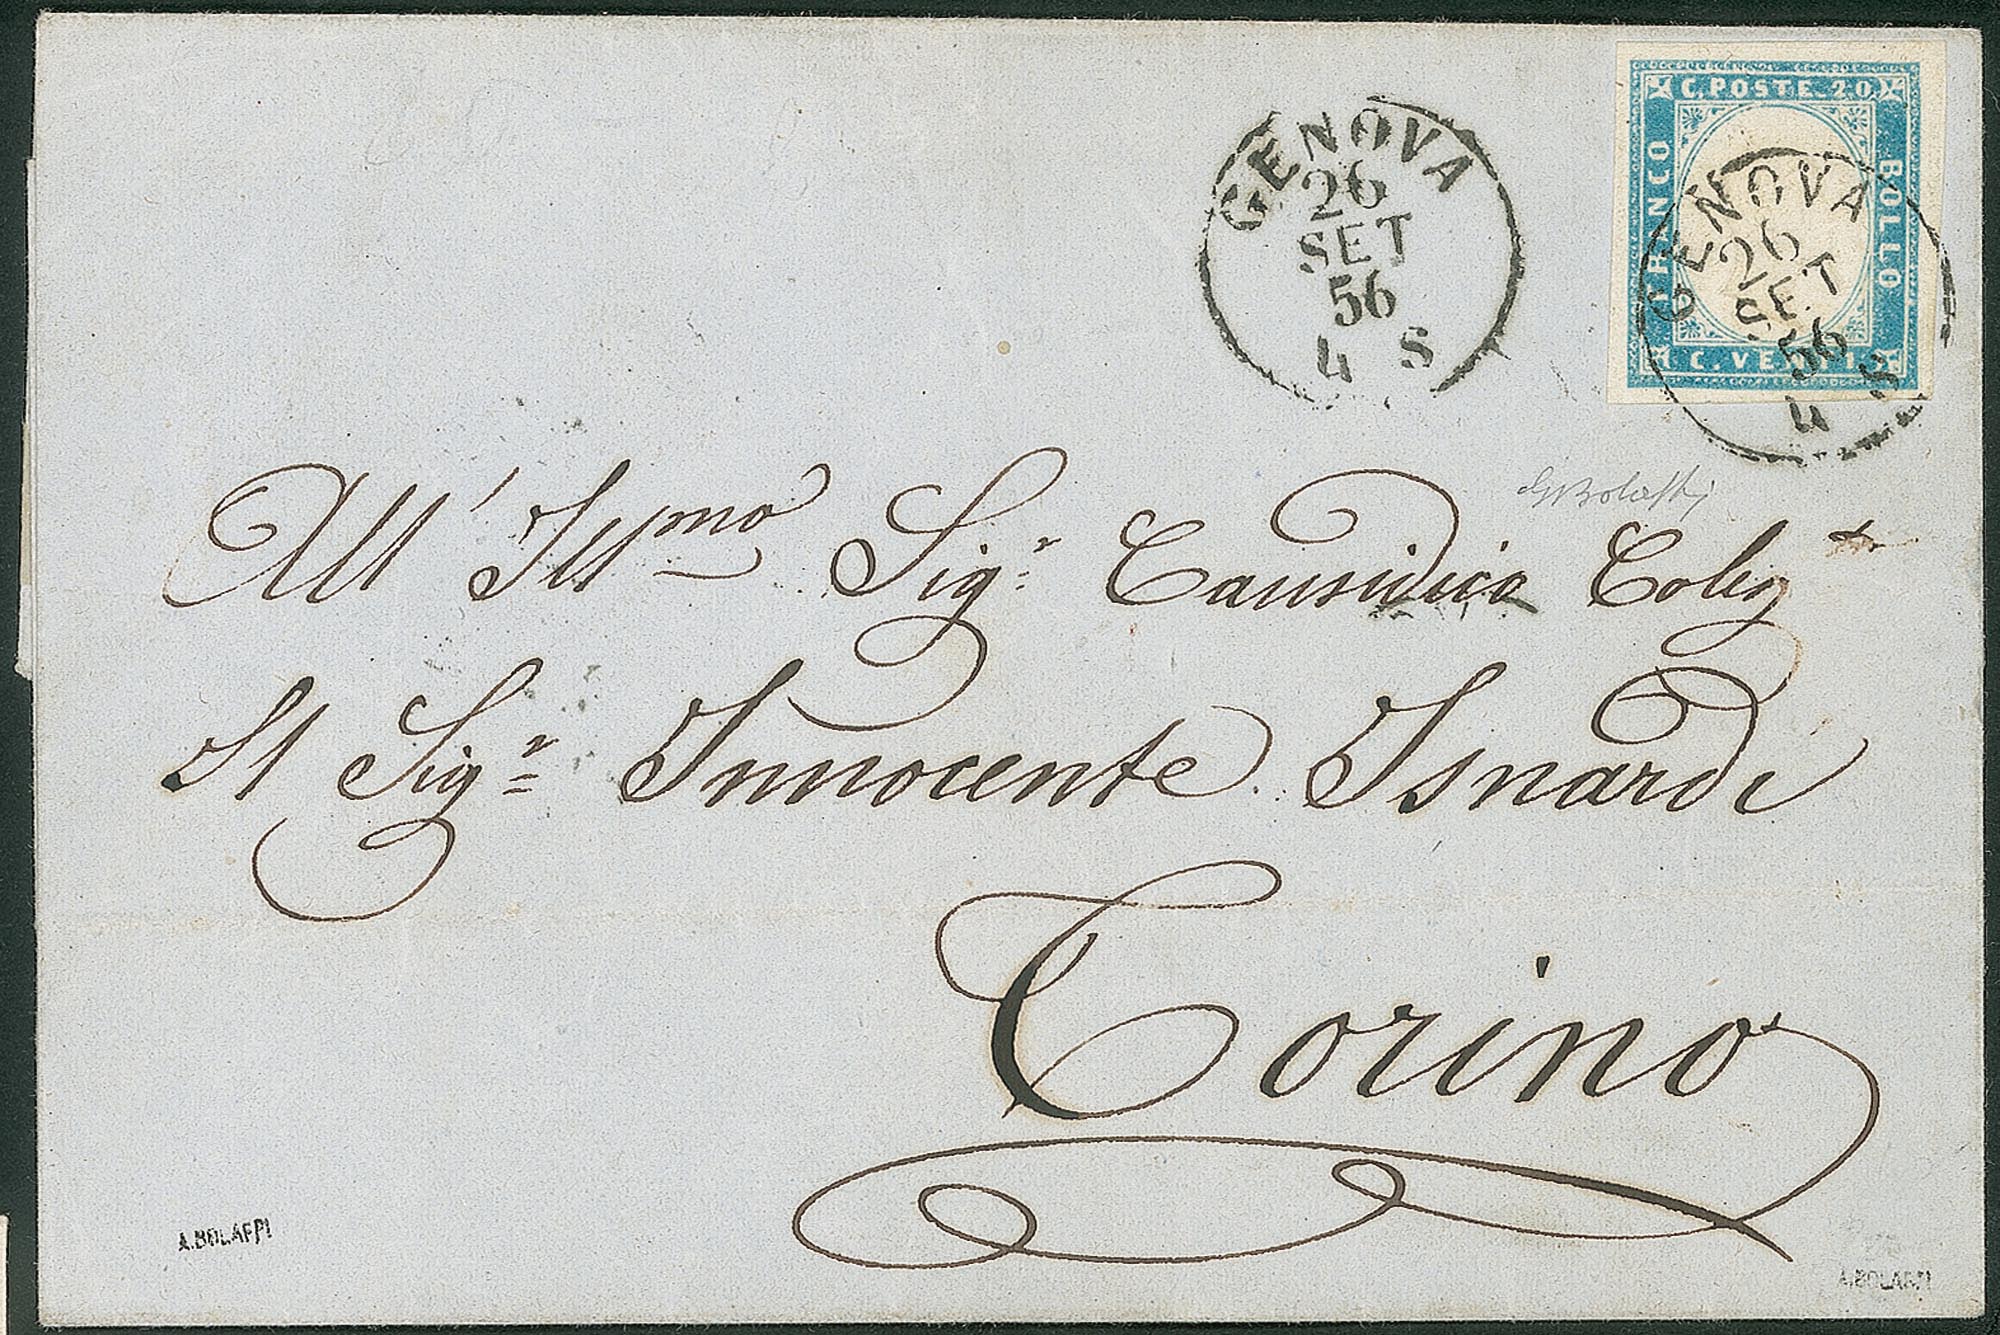 C. POSTE. 20
FRANCO
BOLLO
C. VENTI
GENOVA
26
SET
56
4 S
GENOVA
26
SET
56
4 S
GBolaffi
All' Illmo Sigr. Causidico Coleg
Il Sigr Innocente Isnardi
Torino
A. BOLAFFI
A. BOLAFFI